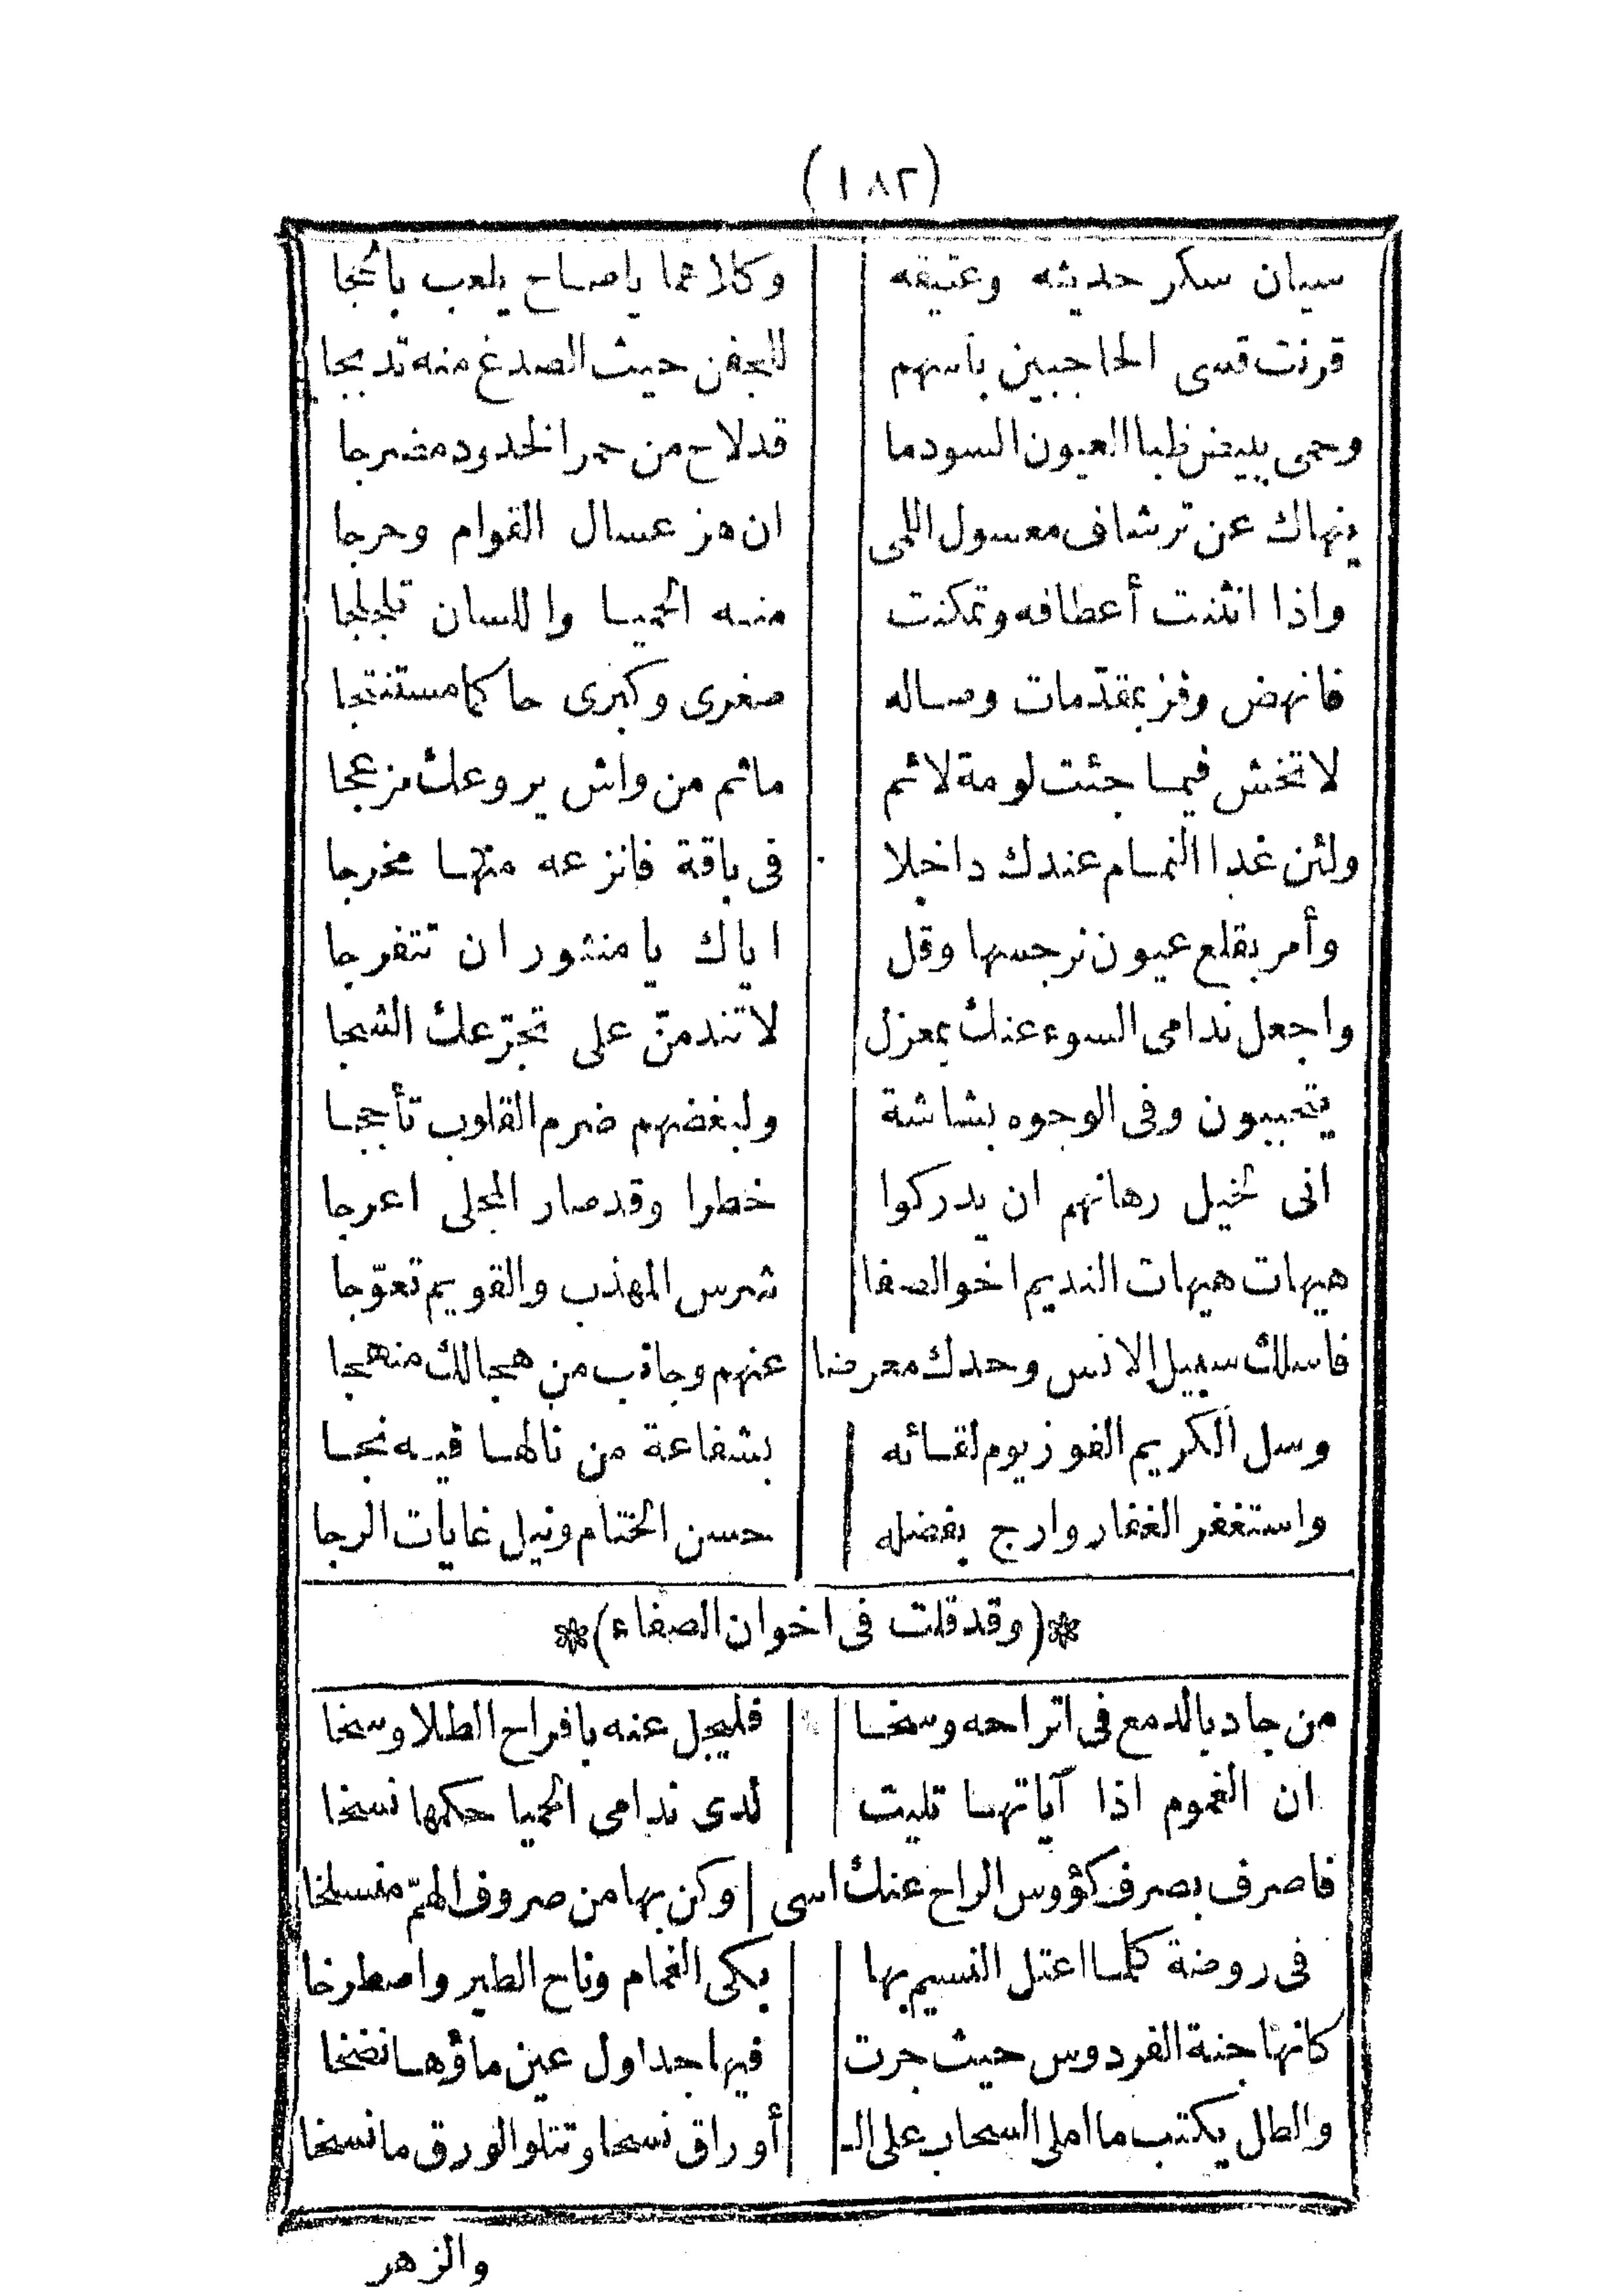 (١٨٢)
سيان سكر حديثه وعتيقه وكلاهما ياصاح يلعب بالحجا
قرنت قسى الحاجبين بأسهم للجفن حيث الصدغ منه تدبجا
وحمى ببيض ظبا العيون السود ما قد لاح من حمر الخدود مضرجا
ينهاك عن ترشاف معسول اللمى ان هز عسال القوام وحرجا
واذا انثنت أعطافه وتمكنت منه الحميا واللسان تلجلجا
فانهض وفز بمقدّمات وصاله صغرى وكبرى حاكما مستنتجا
لا تخش فيما جئت لومة لائم ماثم من واش يروعك مزعجا
ولئن غدا النمام عندك داخلا فى باقة فانزعه منها مخرجا
وأمر بقلع عيون نرجسها وقل اياك يا منثور ان تتفرجا
واجعل ندامى السوء عنك بمعزل لا تندمنّ على تجرّعك الشجا
يتحببون وفى الوجوه بشاشة ولبغضهم ضرم القلوب تأججا
انى لخيل رهانهم ان يدركوا خطرا وقد صار المجلى اعرجا
هيهات هيهات النديم اخو الصفا شرس المهذب والقويم تعوّجا
فاسلك سبيل الانس وحدك معرضا عنهم وجاذب من هجالك منهجا
وسل الكريم الفوز يوم لقائه بشفاعة من نالها فيه نجا
واستغفر الغفار وارج بفضله حسن الختام ونيل غايات الرجا
❊(وقد قلت فى اخوان الصفاء)❊
من جاد بالدمع فى اتراحه وسخا فليجل عنه بافراح الطلا وسخا
ان الغموم اذا آياتها تليت لدى ندامى الحميا حكمها نسخا
فاصرف بصرف كؤوس الراح عنك اسى وكن بها من صروف الهمّ منسلخا
فى روضة كلما اعتل النسيم بها بكى الغمام وناح الطير واصطرخا
كانها جنة الفردوس حيث جرت فيها جداول عين ماؤها نضخا
والطل يكتب ما املى السحاب على الـ أوراق نسخا وتتلو الورق ما نسخا
والزهر